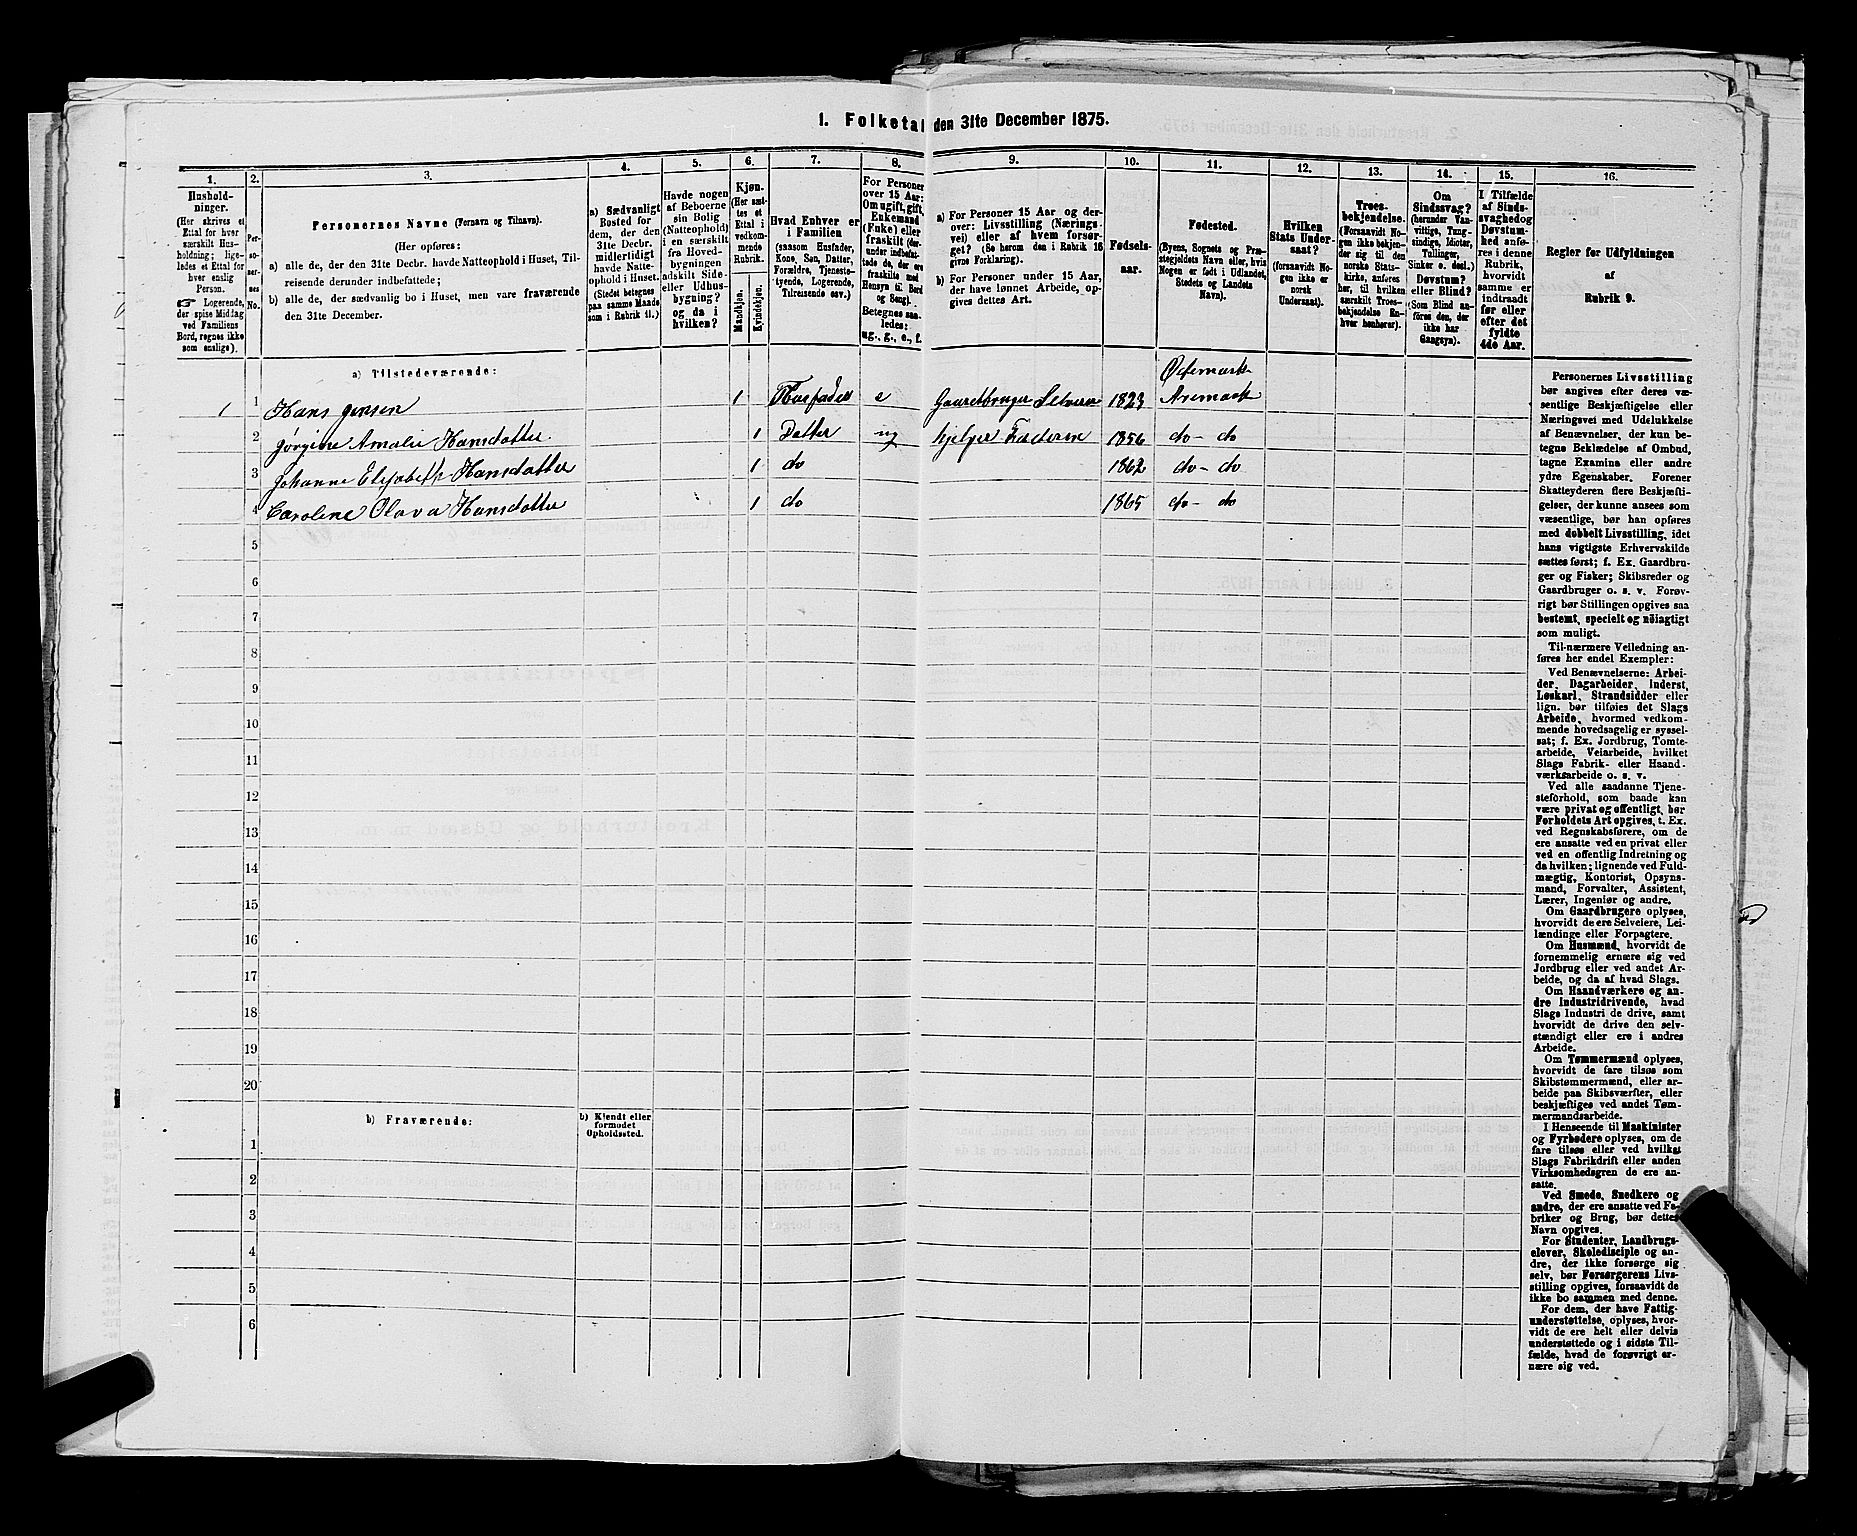 1. Folketal den 31te December 1875.
1.
2.
3.
4.
5.
6.
7.
8.
9.
10.
11.
12.
13.
14.
15.
16.
Hushold-
ninger.
(Her skrives et
Ettal for hver
særskilt Hus-
holdning; lige-
ledes et Ettal for
hver enslig
Person.
☞ Logerende,
der spise Middag
ved Familiens
Bord, regnes ikke
som enslige).
Per-
so-
ner-
nes
No.
Personernes Navne (Fornavn og Tilnavn).
(Her opføres:
a) alle de, der den 31te Decbr. havde Natteophold i Huset, Til-
reisende derunder indbefattede;
b) alle de, der sædvanlig bo i Huset, men vare fraværende
den 31te December.
a) Sædvanligt
Bosted for
dem, der den
31te Decbr.
midlertidigt
havde Natte-
ophold i Huset.
(Stedet betegnes
paa samme Maade
som i Rubrik 11.)
Havde nogen
af Beboerne
sin Bolig
(Natteophold)
i en særskilt
fra Hoved-
bygningen
adskilt Side-
eller Udhus-
bygning?
og da i
hvilken?
Kjøn.
(Her sæt-
tes et
Ettal i
vedkom-
mende
Rubrik.
Mandkjøn.
Kvindekjøn.
Hvad Enhver er
i Familien
(saasom Husfader,
Kone, Søn, Datter,
Forældre, Tjeneste-
tyende, Logerende,
Tilreisende osv.)
For Personer
over 15 Aar:
Om ugift, gift,
Enkemand
(Enke) eller
fraskilt (der-
under indbefat-
tede de, der ere
fraskilte med
Hensyn til Bord
og Seng).
Betegnes saa-
ledes:
ug., g., e., f.
a) For Personer 15 Aar og der-
over: Livsstilling (Nærings-
vei) eller af hvem forsør-
get? (Se herom den i Rubrik 16
givne Forklaring).
b) For Personer under 15 Aar,
der have lønnet Arbeide, op-
gives dettes Art.
Fødsels-
aar.
Fødested.
(Byens, Sognets og Præ-
stegjeldets Navn eller, hvis
Nogen er født i Udlandet,
Stedets og Landets
Navn).
Hvilken
Stats Under-
saat?
(forsaavidt No-
gen ikke er
norsk
Undersaat).
Troes-
bekjendelse.
(Forsaavidt No-
gen ikke bekjen-
der sig til den
norske Stats-
kirke, anføres
her, til hvilken
særskilt Troes-
bekjendelse En-
hver henhører).
Om
Sindssvag?
(herunder Van-
vittige, Tung-
sindige, Idioter,
Tullinger,
Sinker o. desl.)
Døvstum?
eller Blind?
(Som Blind an-
føres den, der
ikke har
Gangsyn).
I Tilfælde
af Sinds-
svaghed og
Døvstum-
hed anfø-
res i denne
Rubrik,
hvorvidt
samme er
indtraadt
før eller
efter det
fyldte
4de Aar.
Regler for Udfyldningen
af
Rubrik 9.
a) Tilstedeværende:
1 1 Hans Jensen 1 Husfader e Gaardbruger Selveier 1823 Ødemark Aremark
2 Jørgine Amalie Hansdatter 1 Datter ug hjelper Faderen 1856 do - do
3 Johanne Elisabeth Hansdatter 1 do 1862 do - do
4 Caroline Olava Hansdatter 1 do 1865 do - do
5
6
7
8
9
10
11
12
13
14
15
16
17
18
19
20
b) Fraværende:
b) Kjendt eller
formodet
Opholdssted.
1
2
3
4
5
6
Personernes Livsstilling
bør angives efter deres væ-
sentlige Beskjæftigelse eller
Næringsvei med Udelukkelse
af Benævnelser, der kun be-
tegne Beklædelse af Ombud,
tagne Examina eller andre
ydre Egenskaber. Forener
Skatteyderen flere Beskjæfti-
gelser, der kunne ansees som
væsentlige, bør han opføres
med dobbelt Livsstilling, idet
hans vigtigste Erhvervskilde
sættes først; f. Ex. Gaardbru-
ger og Fisker; Skibsreder og
Gaardbruger o. s. v. Forøv-
rigt bør Stillingen opgives saa
bestemt, specielt og nøiagtigt
som muligt.
Til nærmere Veiledning an-
føres her endel Exempler:
Ved Benævnelserne: Arbei-
der, Dagarbeider, Inderst,
Løskarl, Strandsidder eller
lign. bør tilføies det Slags
Arbeide, hvormed vedkom-
mende hovedsagelig er syssel-
sat; f. Ex. Jordbrug, Tomte-
arbeide, Veiarbeide, hvilket
Slags Fabrik- eller Haand-
værksarbeide o. s. v.
Ved alle saadanne Tjene-
steforhold, som baade kan
være privat og offentligt, bør
Forholdets Art opgives, t. Ex.
ved Regnskabsførere, om de
ere ansatte ved en privat eller
ved en offentlig Indretning og
da hvilken; lignende ved Fuld-
mægtig, Kontorist, Opsyns-
mand, Forvalter, Assistent,
Lærer, Ingeniør og andre.
Om Gaardbrugere oplyses,
hvorvidt de ere Selveiere, Lei-
lændinge eller Forpagtere.
Om Husmænd, hvorvidt de
fornemmelig ernære sig ved
Jordbrug eller ved andet Ar-
beide, og da af hvad Slags.
Om Haandværkere og an-
dre Industridrivende, hvad
Slags Industri de drive, samt
hvorvidt de drive den selv-
stændigt eller ere i andres
Arbeide.
Om Tømmermænd oplyses,
hvorvidt de fare tilsøs som
Skibstømmermænd, eller ar-
beide paa Skibsværfter, eller
beskjæftiges ved andet Tøm-
mermandsarbeide.
I Henseende til Maskinister
og Fyrbødere oplyses, om de
fare tilsøs eller ved hvilket
Slags Fabrikdrift eller anden
Virksomhedsgren de ere an-
satte.
Ved Smede, Snedkere og
andre, der ere ansatte ved Fa-
briker og Brug, bør dettes
Navn opgives.
For Studenter, Landbrugs-
elever, Skoledisciple og an-
dre, der ikke forsørge sig
selv, bør Forsørgerens Livs-
stilling opgives, forsaavidt de
ikke bo sammen med denne.
For dem, der have Fattig-
understøttelse, oplyses, hvor-
vidt de ere helt eller delvis
understøttede og i sidste Til-
fælde, hvad de forøvrigt er-
nære sig ved.